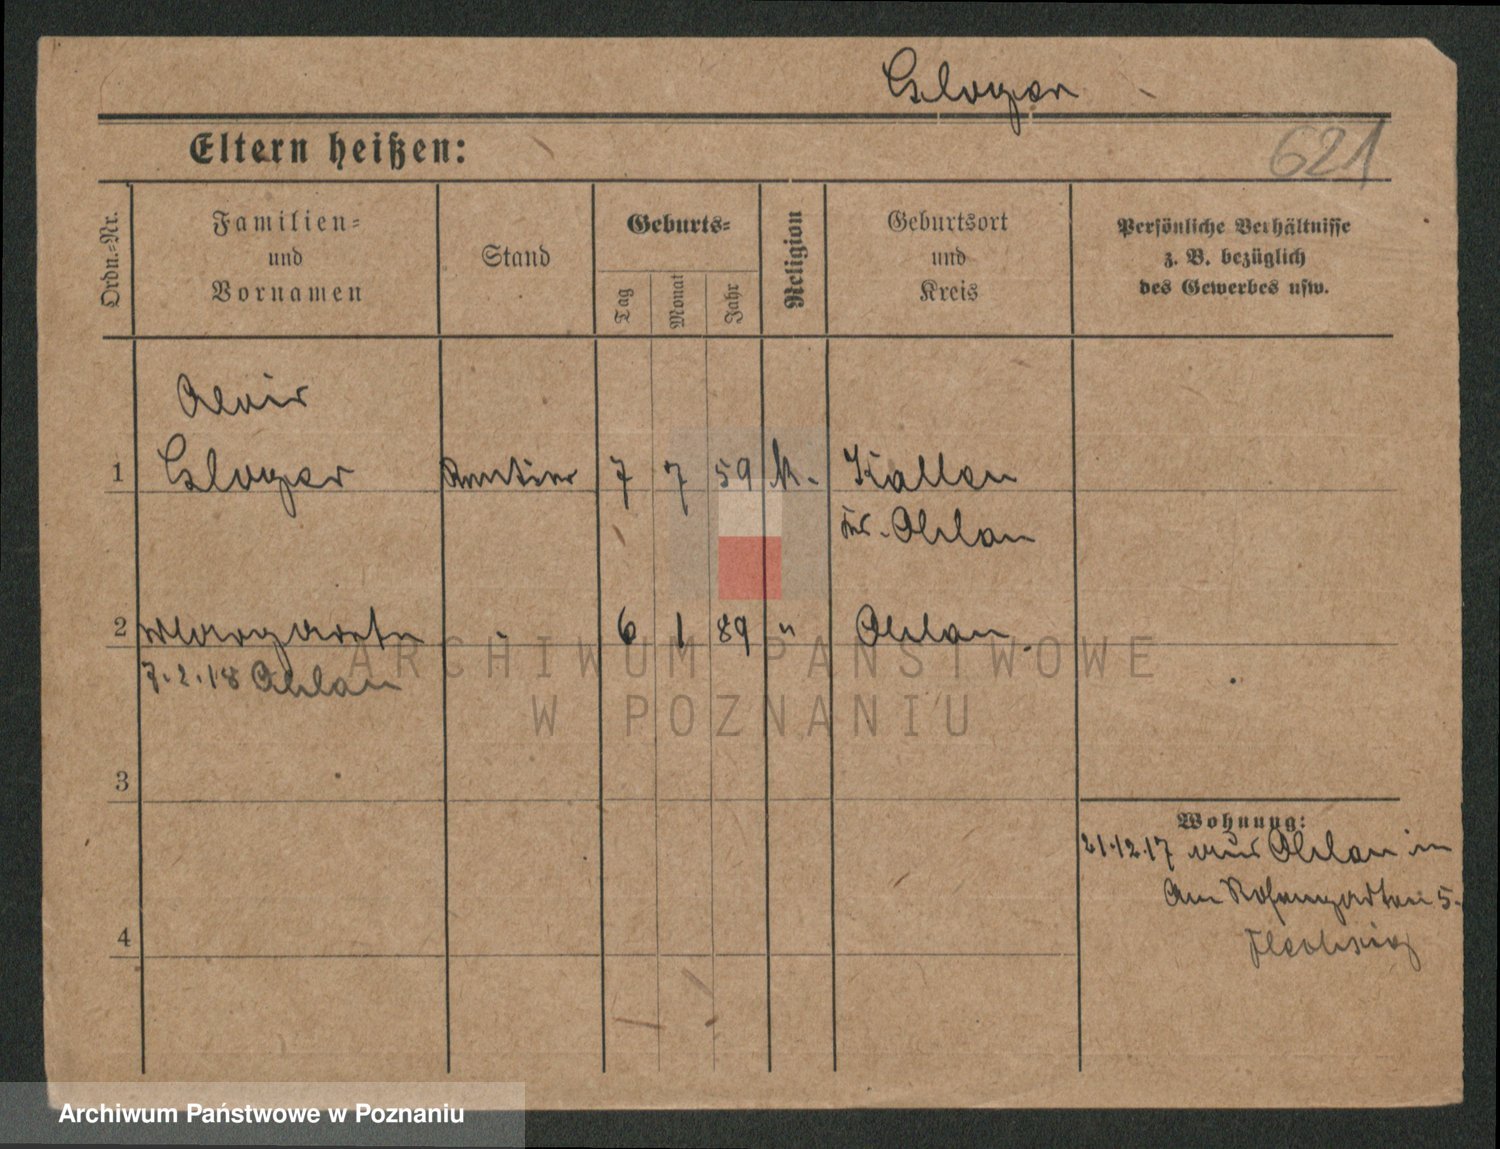 Gloger
Eltern heißen:
621
Ordn.-Nr.
Familien-
und
Vornamen
Stand
Geburts-
Tag
Monat
Jahr
Religion
Geburtsort
und
Kreis
Persönliche Verhältnisse
z. B. bezüglich
des Gewerbes usw.
Alois
1 Gloger Rentier 7 7 59 k. Kallen
Kr. Ohlau
2 Margarete - 6 1 89 " Ohlau
7.2.18 Ohlau
ARCHIWUM PAŃSTWOWE
W POZNANIU
3
Wohnung:
21.12.17 aus Ohlau in
Am Rosengarten 5.
4
Archiwum Państwowe w Poznaniu